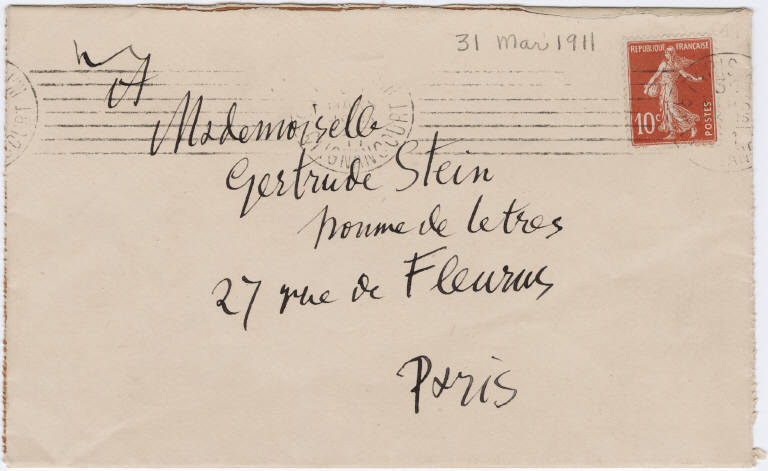 31 Mai 1911
REPUBLIQUE FRANÇAISE
10c
POSTES
A
Mademoiselle
Gertrude Stein
homme de letres
27 rue de Fleurus
Paris